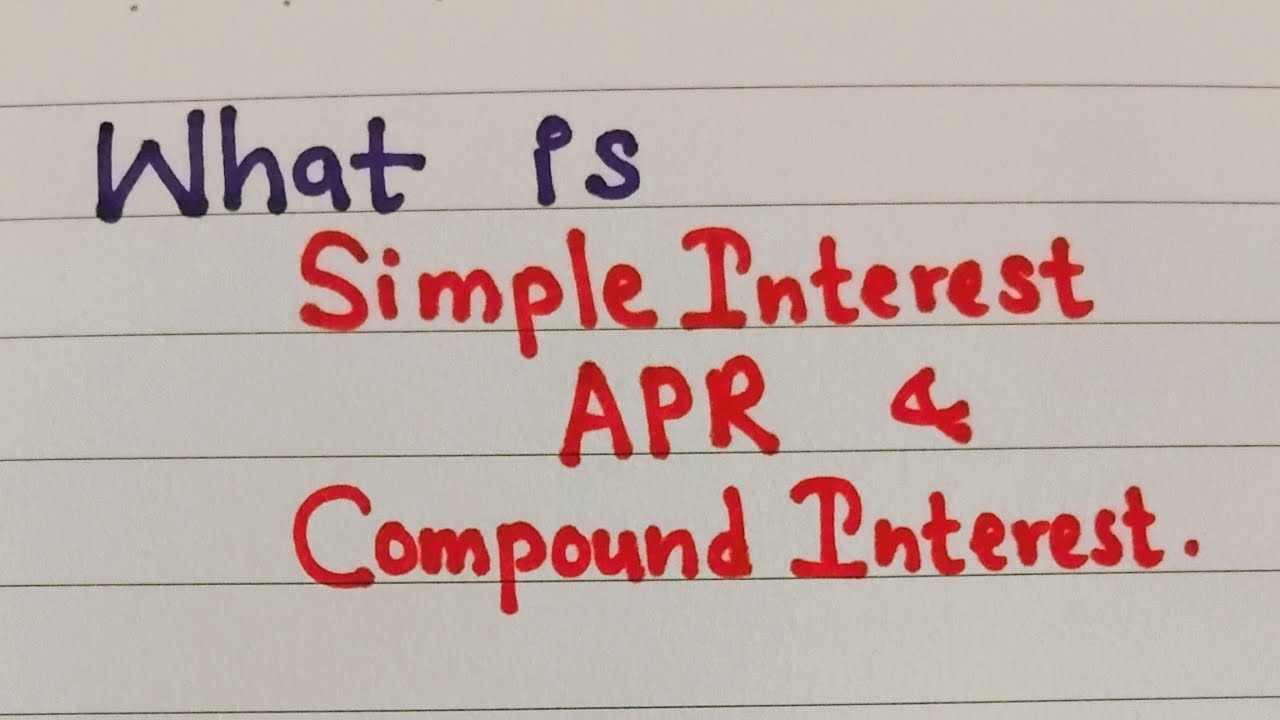 What is
Simple Interest
APR &
Compound Interest.